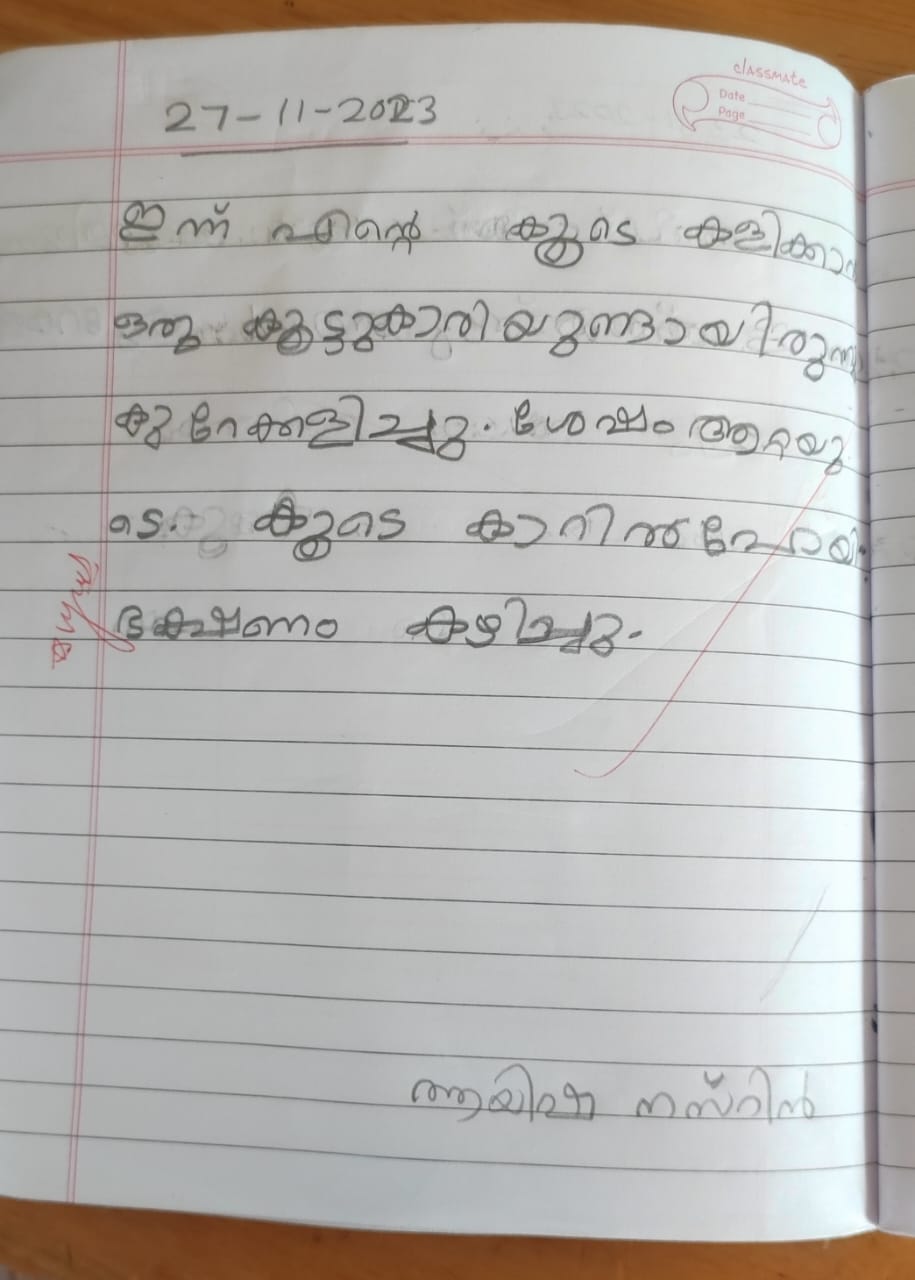 classmate
Date
Page
27-11-2023
ഇന്ന് എന്റെ കൂടെ കളിക്കാൻ
ഒരു കൂട്ടുകാരിയുണ്ടായിരുന്നു
കുറേകളിച്ചു. ശേഷം ആത്തയു
ടെ. കൂടെ കാറിൽപോയി.
ഭക്ഷണം കഴിച്ചു.
ആയിഷ നസ്റിൻ